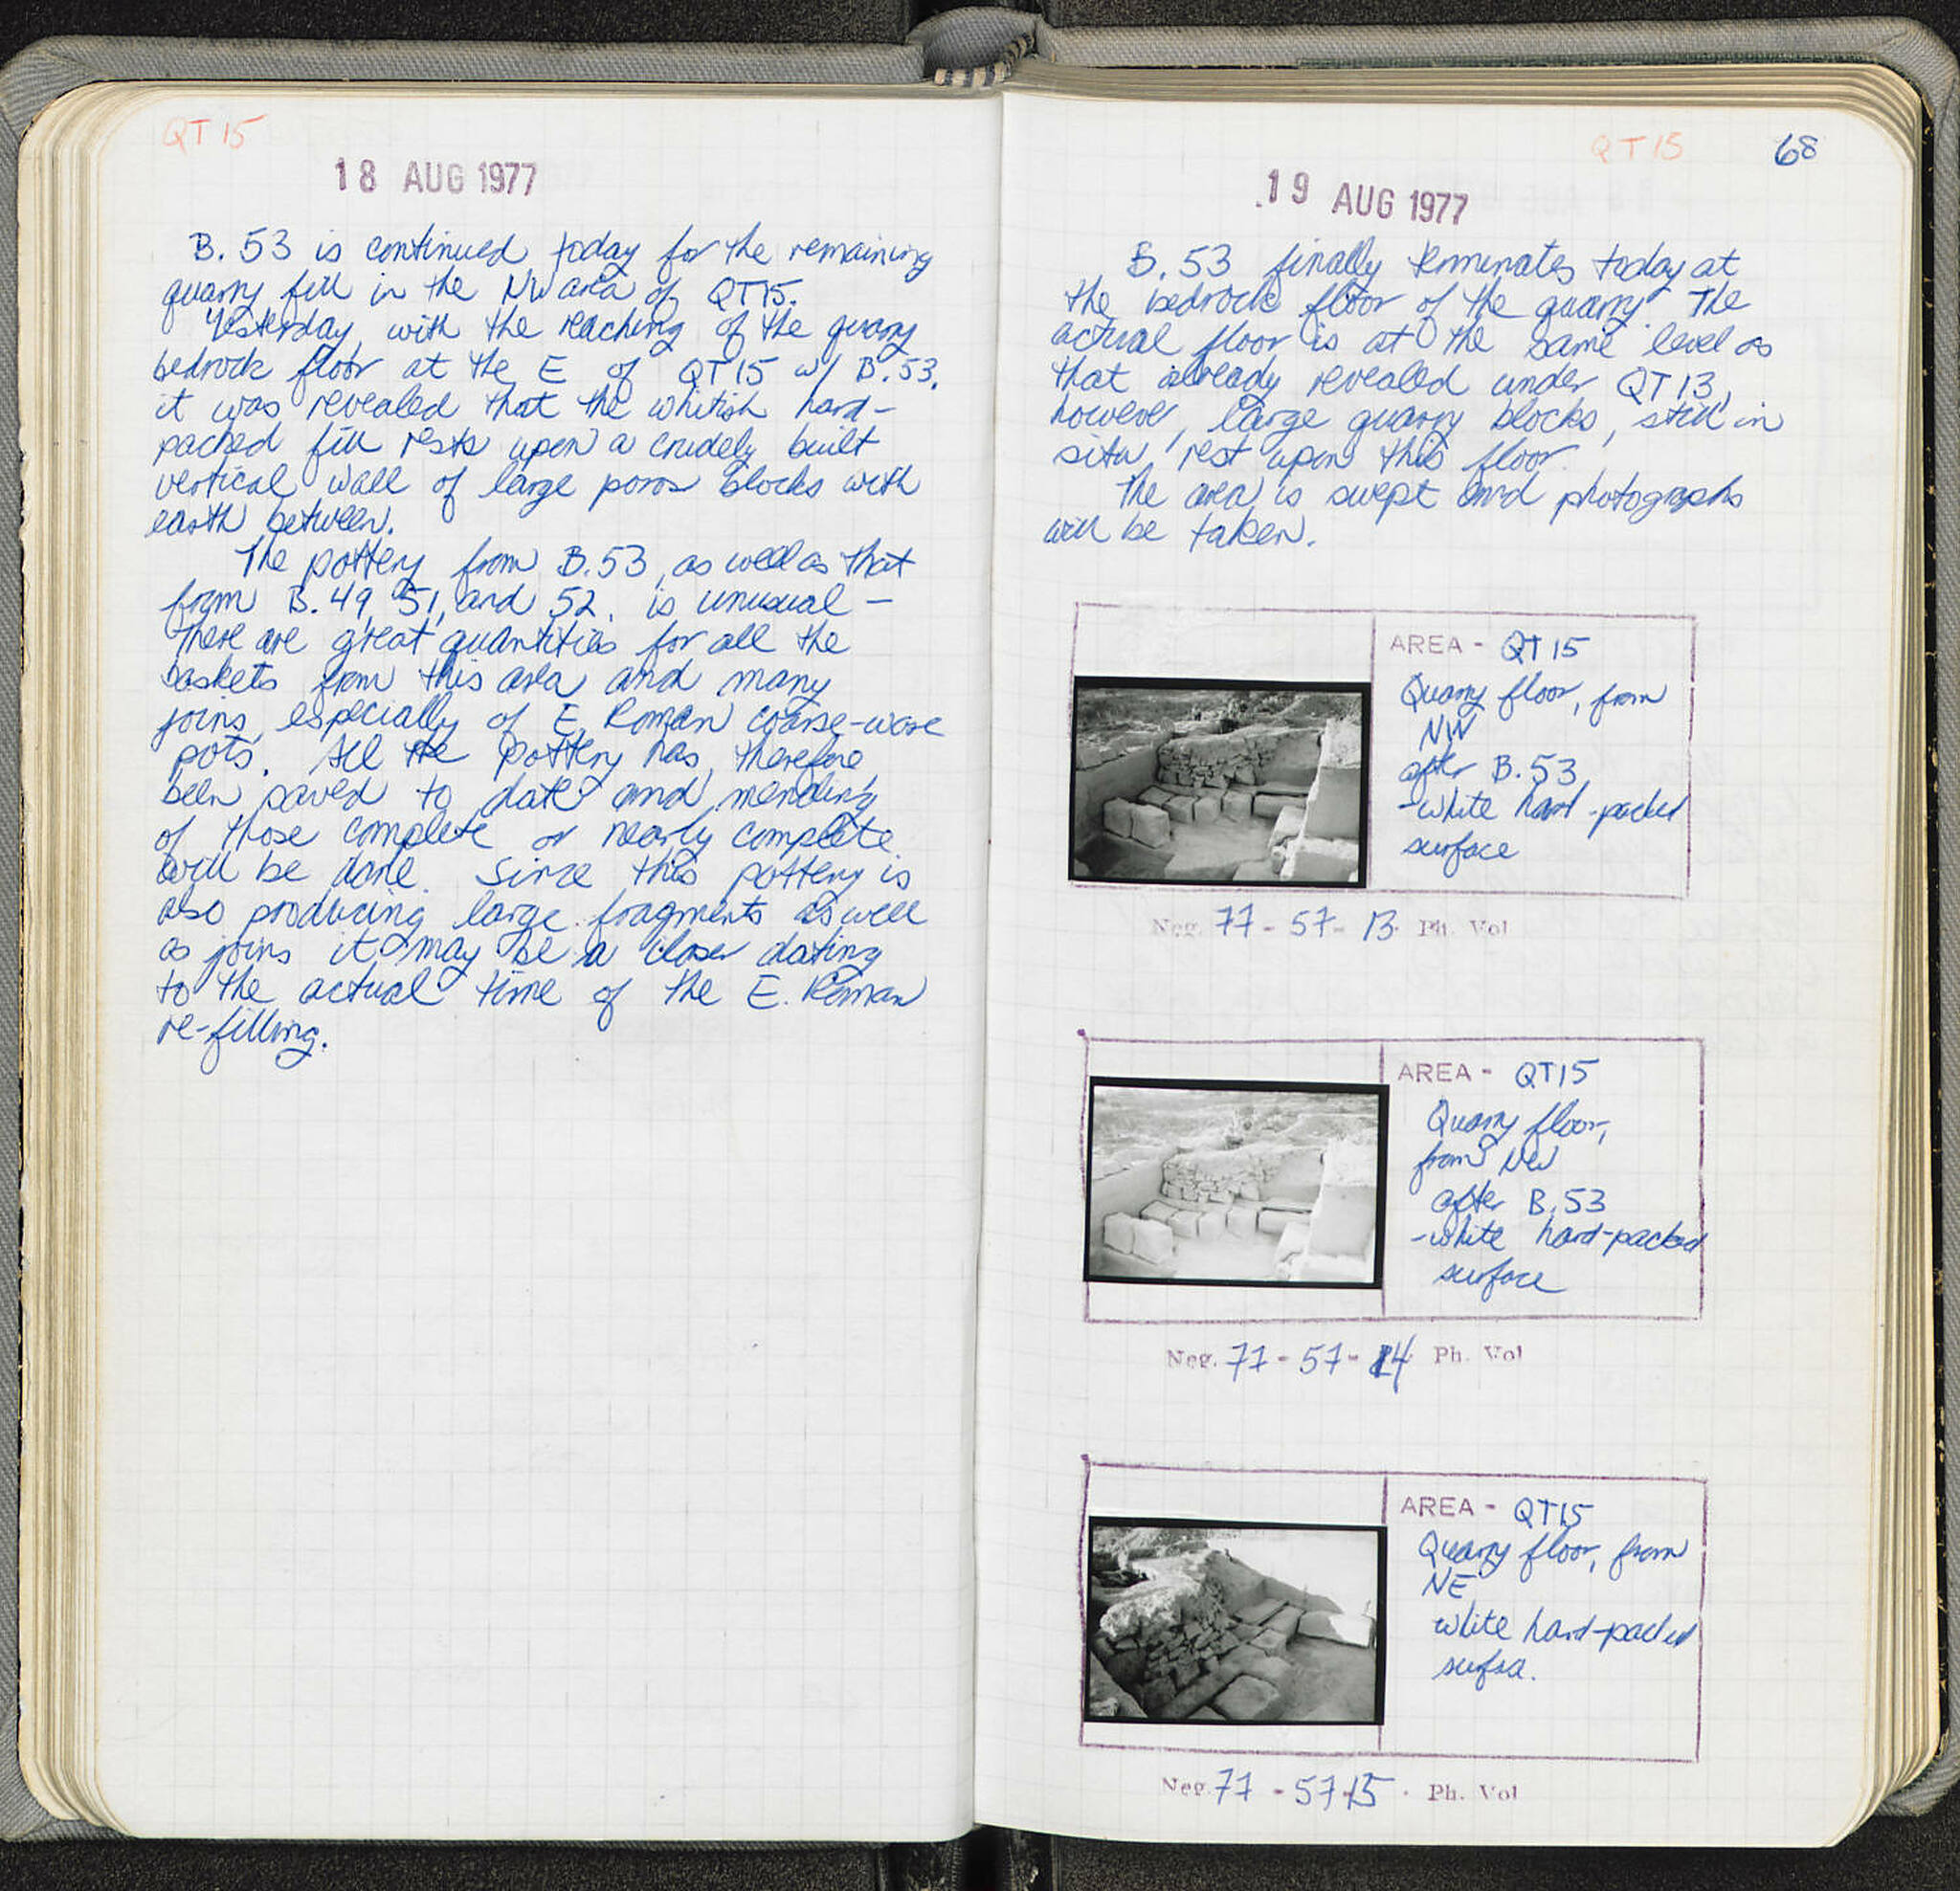 QT 15
18 AUG 1977
B. 53 is continued today for the remaining
quarry fill in the NW area of QT15.
Yesterday, with the reaching of the quarry
bedrock floor at the E of QT15 w/ B.53,
it was revealed that the whitish hard-
packed fill rests upon a crudely built
vertical wall of large poros blocks with
earth between.
The pottery from B.53, as well as that
from B.49, 51, and 52, is unusual -
there are great quantities for all the
baskets from this area and many
joins, especially of E. Roman coarse-ware
pots. All the pottery has, therefore
been saved to date and mending
of those complete or nearly complete
will be done. Since this pottery is
also producing large fragments as well
as joins it may be a closer dating
to the actual time of the E. Roman
re-filling.
QT 15
68
19 AUG 1977
B. 53 finally terminates today at
the bedrock floor of the quarry. The
actual floor is at the same level as
that already revealed under QT 13,
however, large quarry blocks, still in
situ, rest upon this floor.
The area is swept and photographs
will be taken.
AREA - QT 15
Quarry floor, from
NW
after B. 53,
-white hard-packed
surface
Neg. 77-57-13 Ph. Vol
AREA - QT15
Quarry floor,
from NW
after B. 53
-white hard-packed
surface
Neg. 77-57-14 Ph. Vol
AREA - QT15
Quarry floor, from
NE
white hard-packed
surfa.
Neg. 77-57-15 Ph. Vol